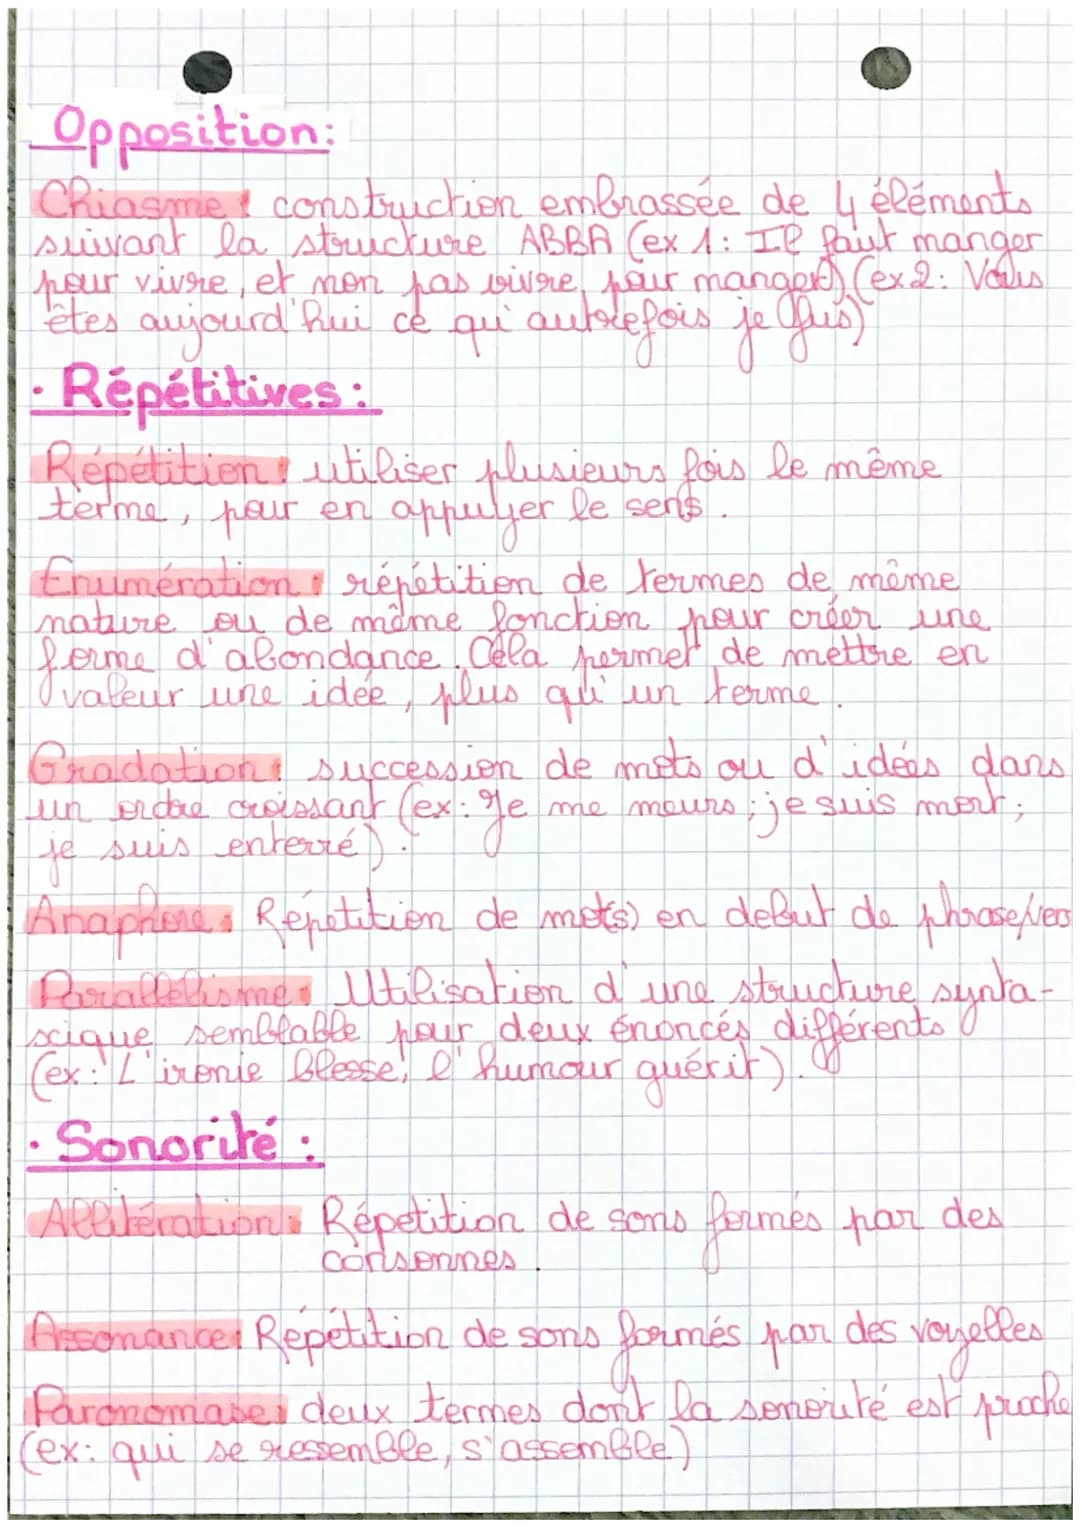 Opposition:
Chiasme: construction embrassée de 4 éléments
suivant la structure ABBA (ex 1: Il faut manger
pour vivre, et non pas vivre pour manger) (ex2: Vous
êtes aujourd'hui ce qu'autrefois je fus)
· Répétitives:
Répétition: utiliser plusieurs fois le même
terme, pour en appuyer le sens.
Enumération: répétition de termes de même
nature ou de même fonction pour créer une
forme d'abondance. Cela permet de mettre en
valeur une idée, plus qu'un terme.
Gradation: succession de mots ou d'idées dans
un ordre croissant (ex: Je me meurs; je suis mort;
je suis enterré).
Anaphore: Répétition de mot(s) en debut de phrase/vers
Parallélisme: Utilisation d'une structure synta-
scique semblable pour deux énoncés différents
(ex: L'ironie blesse, l'humour guérit).
· Sonorité:
Allitération: Répetition de sons formés par des
consonnes.
Assonance: Répétition de sons formés par des voyelles
Paronomase: deux termes dont la sonorité est proche
(ex: qui se ressemble, s'assemble)